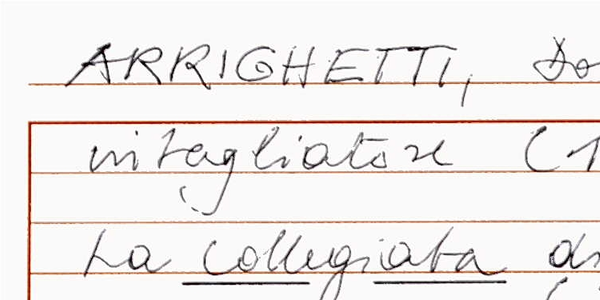 ARRIGHETTI, Do
intagliatore (1
La Collegiata di